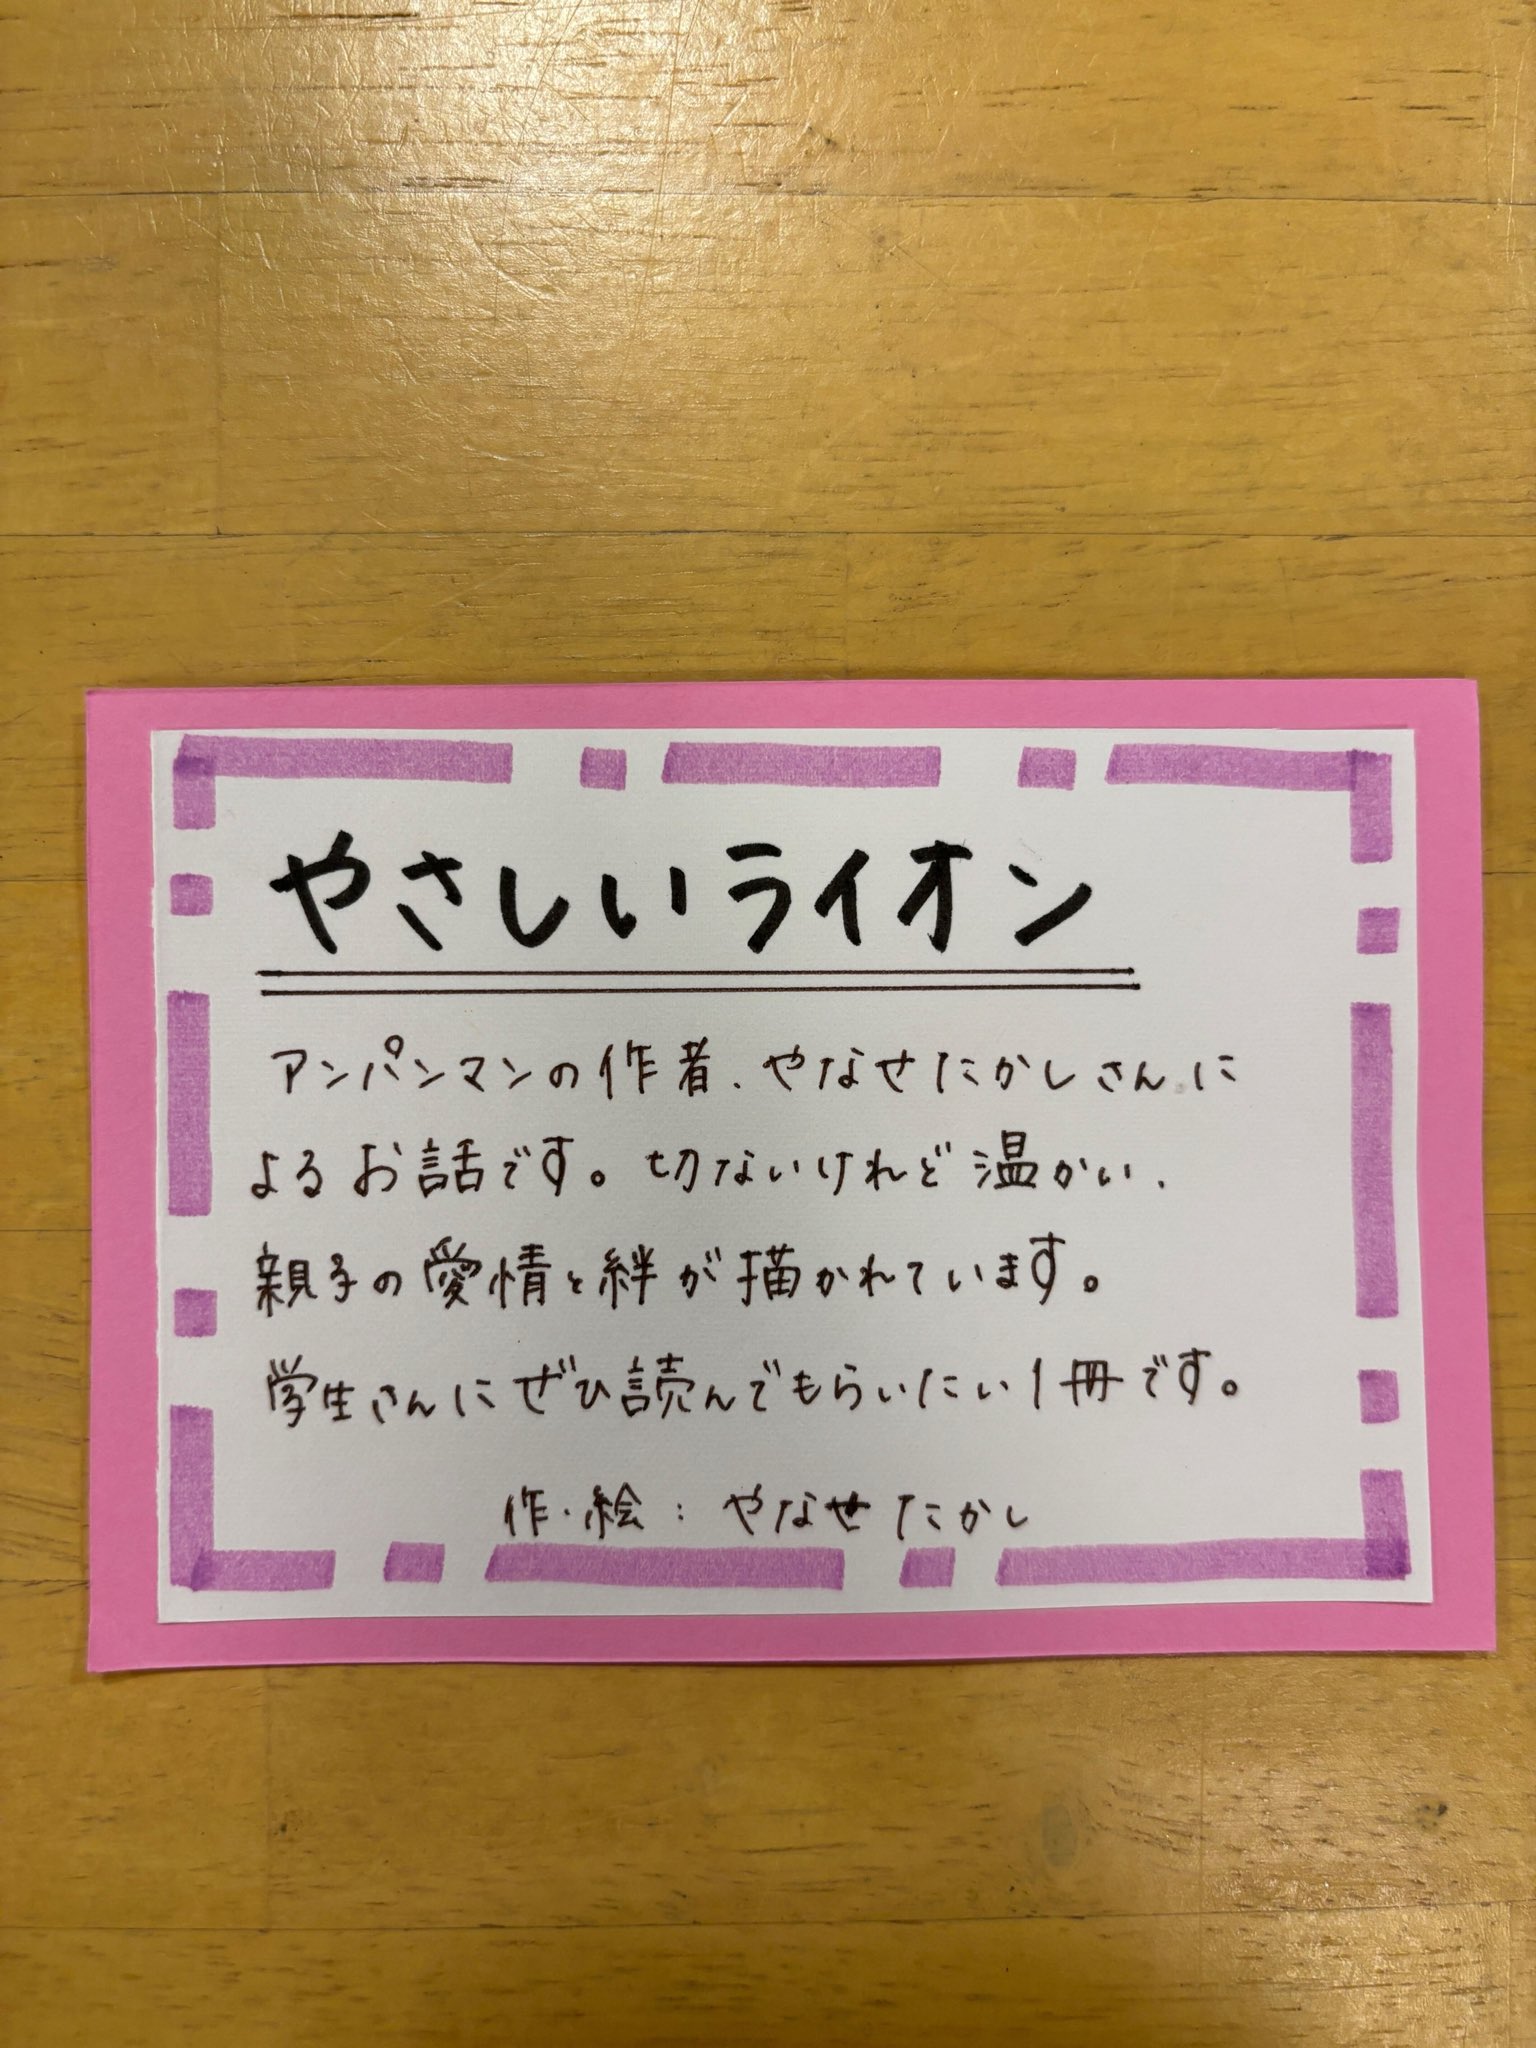 やさしいライオン
アンパンマンの作者、やなせたかしさんに
よるお話です。切ないけれど温かい、
親子の愛情と絆が描かれています。
学生さんにぜひ読んでもらいたい1冊です。
作・絵：やなせたかし